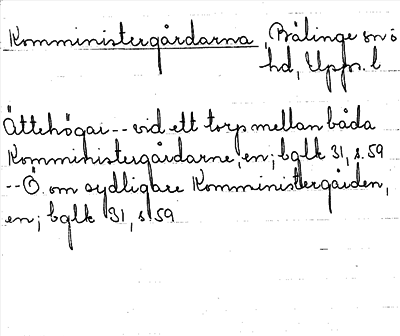 Komministergårdarna, Bälinge sn o
hd, Upps. l
Ättehögar -- vid ett torp mellan båda
Komministergårdarne, en; bglk 31, s. 59
-- Ö. om sydligare Komministergården,
en; bglk 31, s 59